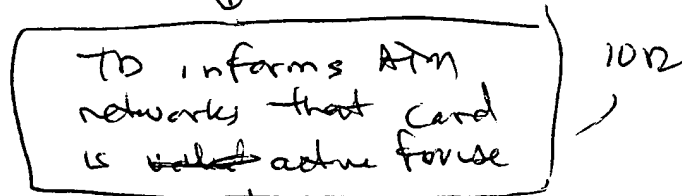 TD informs ATM 1012
networks that card
is active for use